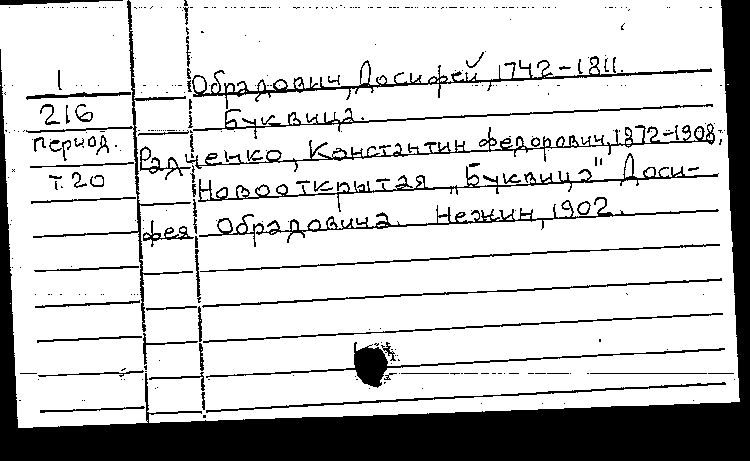 1
216
период.
т.20
Обрадович, Досифей, 1742-1811.
Буквица.
Радченко, Константин Федорович, 1872-1908.
Новооткрытая „Буквица" Доси-
фея Обрадовича. Нежин, 1902.